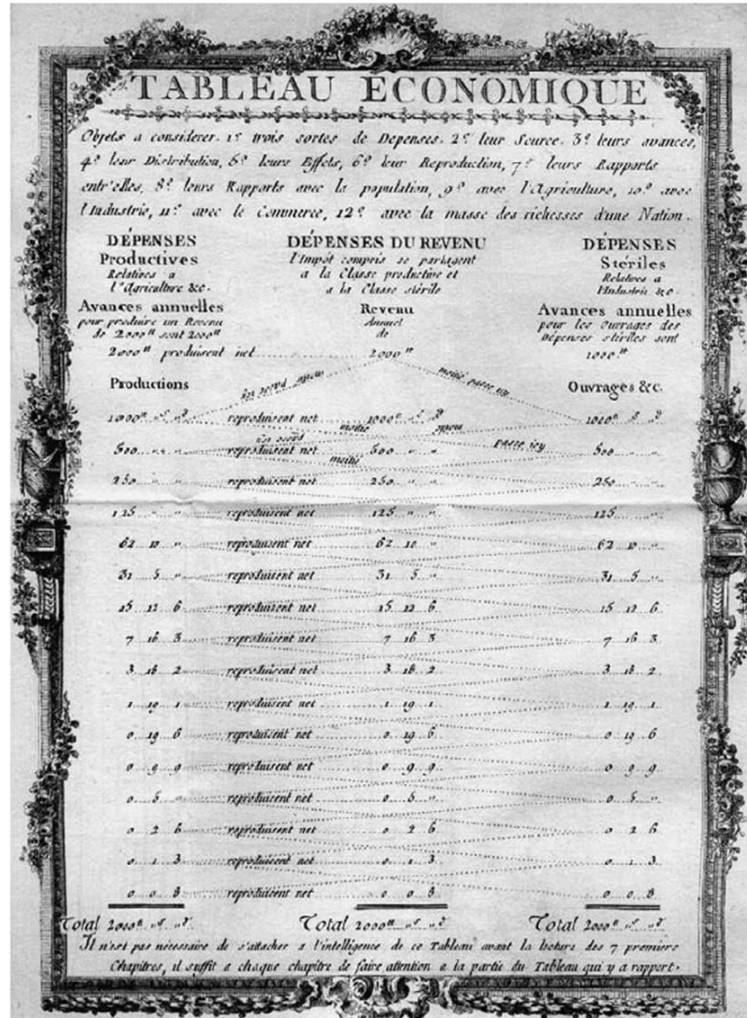 TABLEAU ECONOMIQUE
Objets a considerer, 1º trois sortes de Depenses, 2º leur Source, 3º leurs avances,
4º leur Distribution, 5º leurs Effets, 6º leur Reproduction, 7º leurs Rapports
entr'elles, 8º leurs Rapports avec la population, 9º avec l'Agriculture, 10º avec
l'Industrie, 11º avec le Commerce, 12º avec la masse des richesses d'une Nation.
DÉPENSES
Productives
Relatives a
l'Agriculture &c.
DÉPENSES DU REVENU
l'Impôt compris se partagent
a la Classe productive et
a la Classe stérile
DÉPENSES
Stériles
Relatives a
l'Industrie &c.
Avances annuelles
pour produire un Revenu
de 2000tt sont 2000tt
Revenu
Annuel
de
Avances annuelles
pour les Ouvrages des
Dépenses stériles sont
2000tt produisent net 2000tt 1000tt
moitié passe icy
Productions Ouvrages &c.
1000tt reproduisent net 1000tt 1000tt
moitié passe icy
500 reproduisent net 500 500
moitié
250 reproduisent net 250 250
125 reproduisent net 125 125
62 10 reproduisent net 62 10 62 10
31 5 reproduisent net 31 5 31 5
15 12 6 reproduisent net 15 12 6 15 12 6
7 16 3 reproduisent net 7 16 3 7 16 3
3 18 2 reproduisent net 3 18 2 3 18 2
1 19 1 reproduisent net 1 19 1 1 19 1
0 19 6 reproduisent net 0 19 6 0 19 6
0 9 9 reproduisent net 0 9 9 0 9 9
0 5 reproduisent net 0 5 0 5
0 2 6 reproduisent net 0 2 6 0 2 6
0 1 3 reproduisent net 0 1 3 0 1 3
0 0 8 reproduisent net 0 0 8 0 0 8
Total 2000tt Total 2000tt Total 2000tt
Il n'est pas nécessaire de s'attacher a l'intelligence de ce Tableau avant la lecture des 7 premiers
Chapitres, il suffit a chaque chapitre de faire attention a la partie du Tableau qui y a rapport.